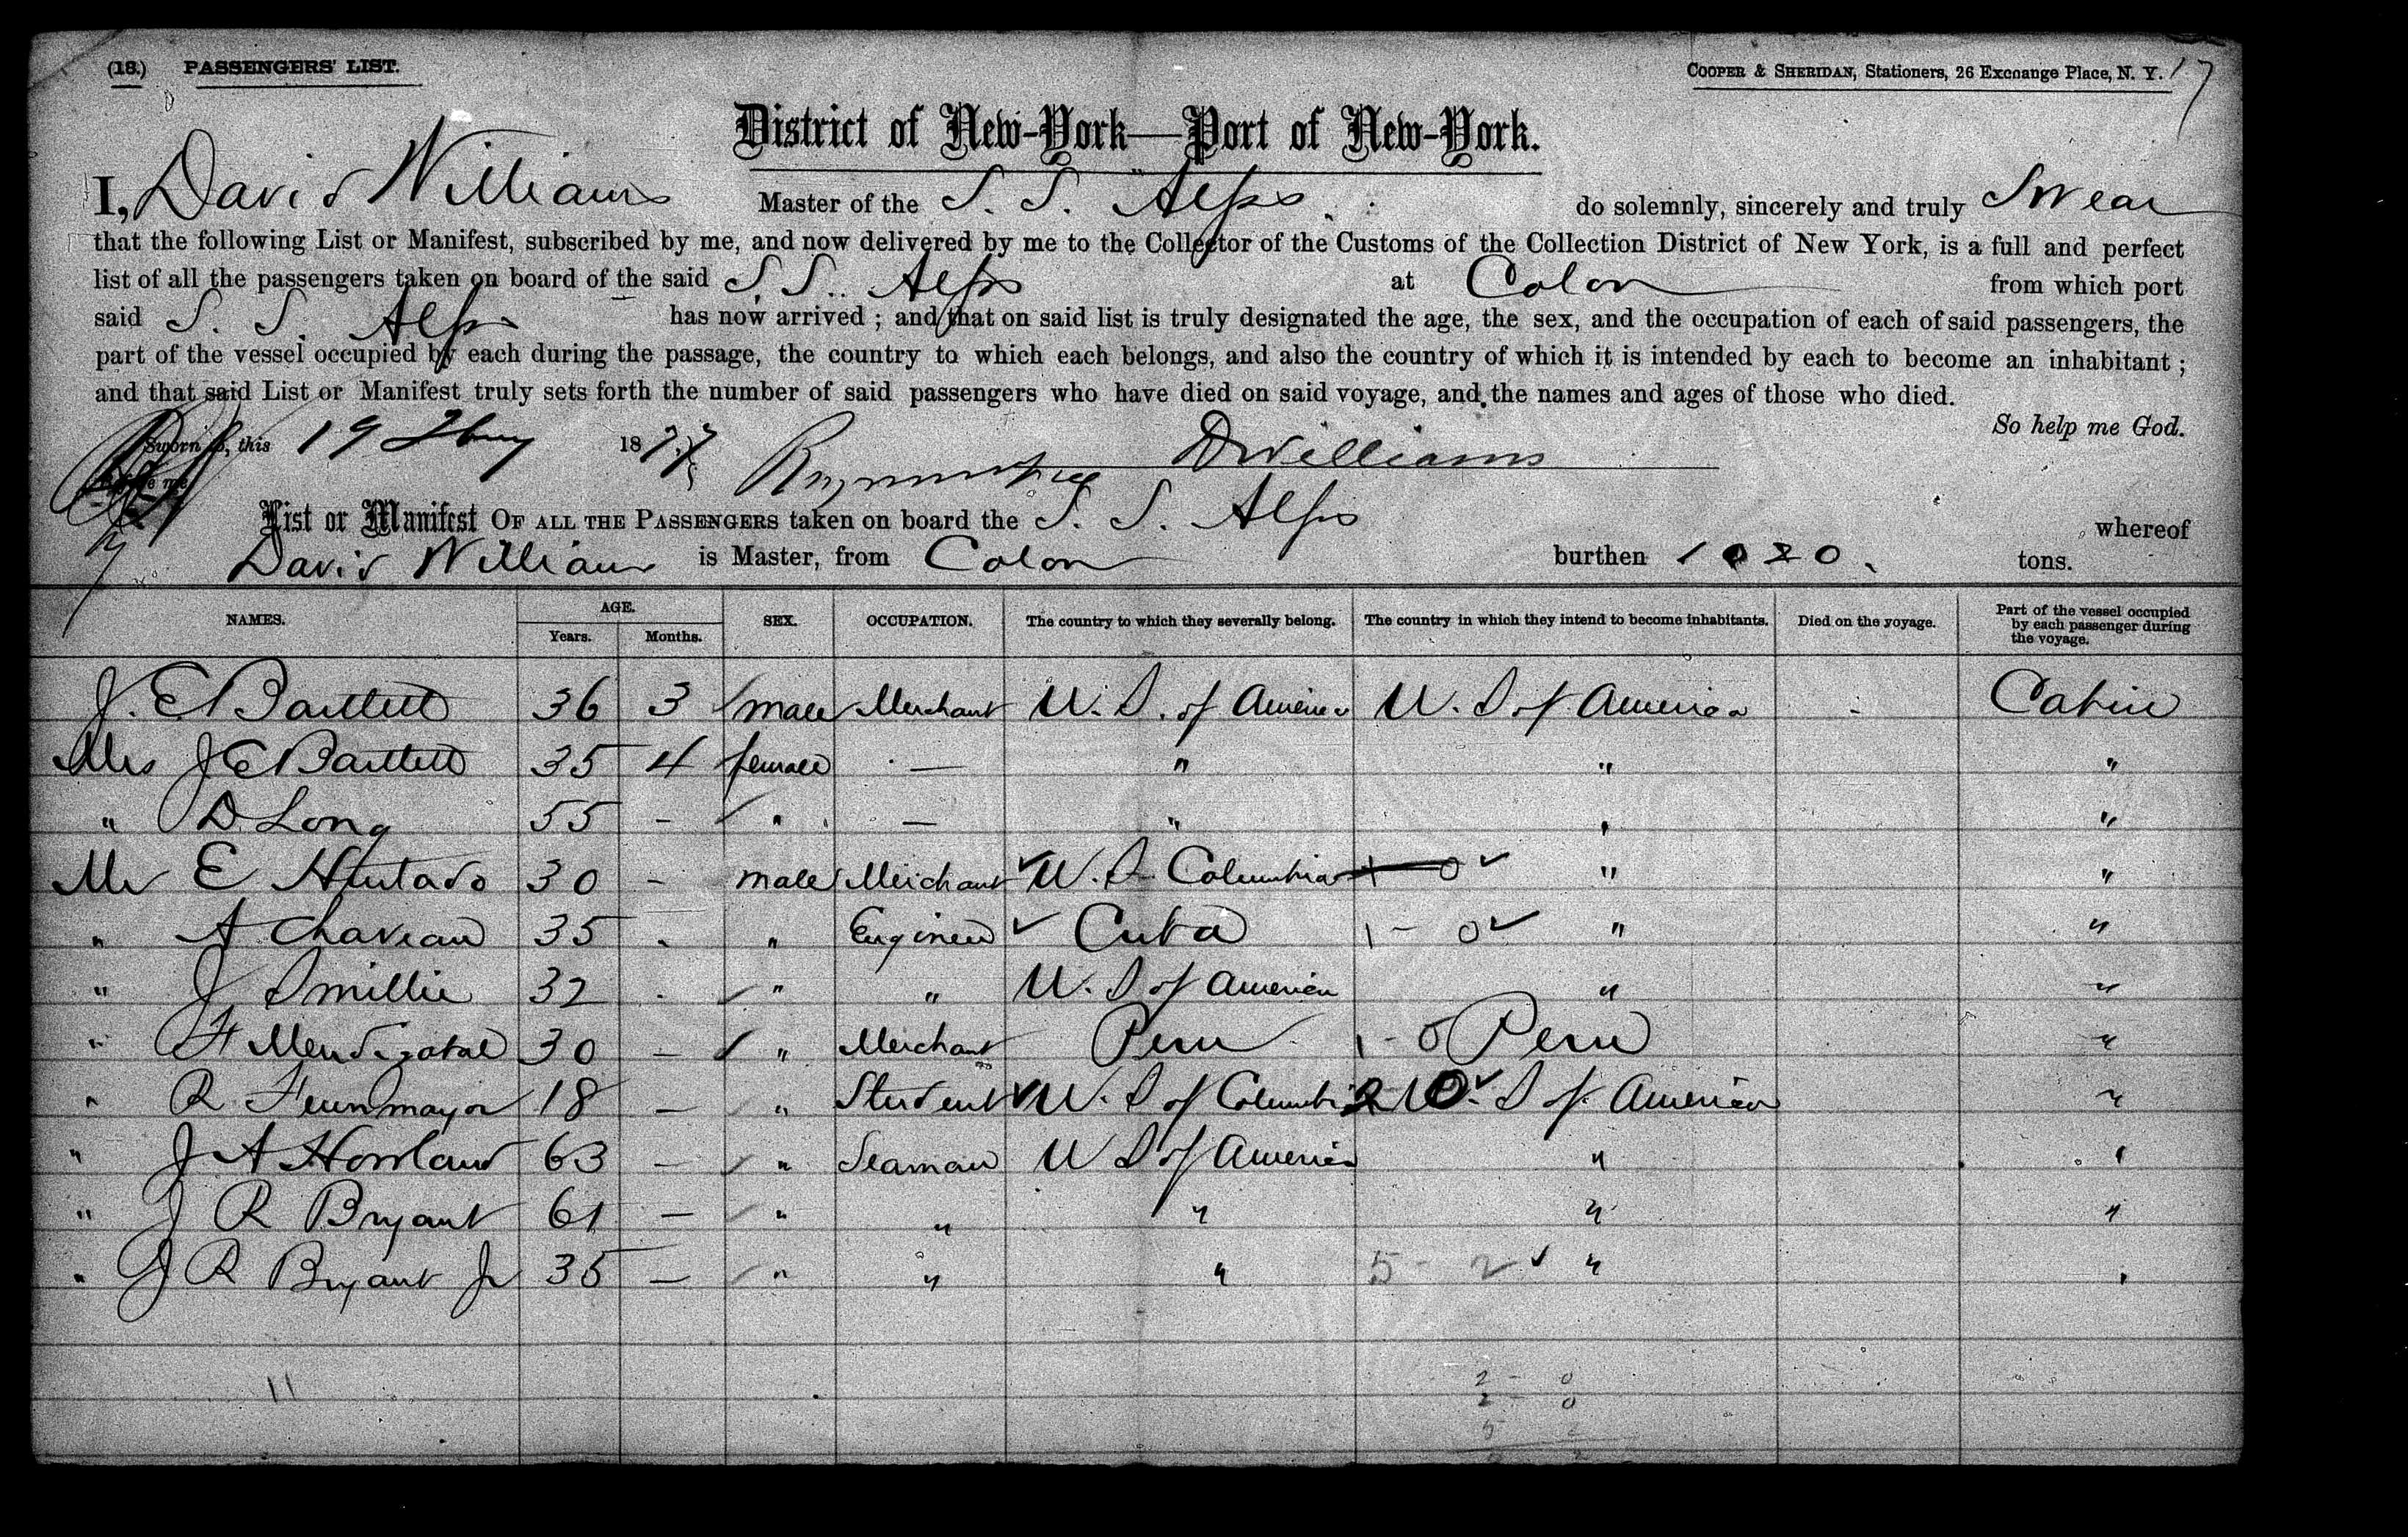 (18.) PASSENGERS' LIST.
COOPER & SHERIDAN, Stationers, 26 Exchange Place, N. Y. 17
District of New-York—Port of New-York.
I, David Williams Master of the S. S. Alps do solemnly, sincerely and truly Swear
that the following List or Manifest, subscribed by me, and now delivered by me to the Collector of the Customs of the Collection District of New York, is a full and perfect
list of all the passengers taken on board of the said S. S. Alps at Colon from which port
said S. S. Alps has now arrived ; and that on said list is truly designated the age, the sex, and the occupation of each of said passengers, the
part of the vessel occupied by each during the passage, the country to which each belongs, and also the country of which it is intended by each to become an inhabitant ;
and that said List or Manifest truly sets forth the number of said passengers who have died on said voyage, and the names and ages of those who died.
So help me God.
Sworn to, this 19 1877 D Williams
Before me
List or Manifest OF ALL THE PASSENGERS taken on board the S. S. Alps whereof
David Williams is Master, from Colon burthen 1020 tons.
NAMES. AGE. Years. Months. SEX. OCCUPATION. The country to which they severally belong. The country in which they intend to become inhabitants. Died on the voyage. Part of the vessel occupied by each passenger during the voyage.
J. E Bartlett 36 3 male Merchant U. S. of America U. S of America - Cabin
Mrs J E Bartlett 35 4 female — " " "
" D Long 55 - " — " " "
Mr E Hurtado 30 - male Merchant U. S Columbia " "
" A Chaveau 35 - " Engineer Cuba 1 - 0 " "
" J Smillie 32 - " " U. S of America " "
" F Mendizabal 30 — " Merchant Peru 1 - 0 Peru "
" R Feunmayor 18 — " Student U. S of Columbia 2 0 U. S of America "
" J A Howland 63 — " Seaman U S of America " "
" J R Bryant 61 — " " " " "
" J R Bryant Jr 35 — " " " 5 - 2 " "
11
2 - 0
2 - 0